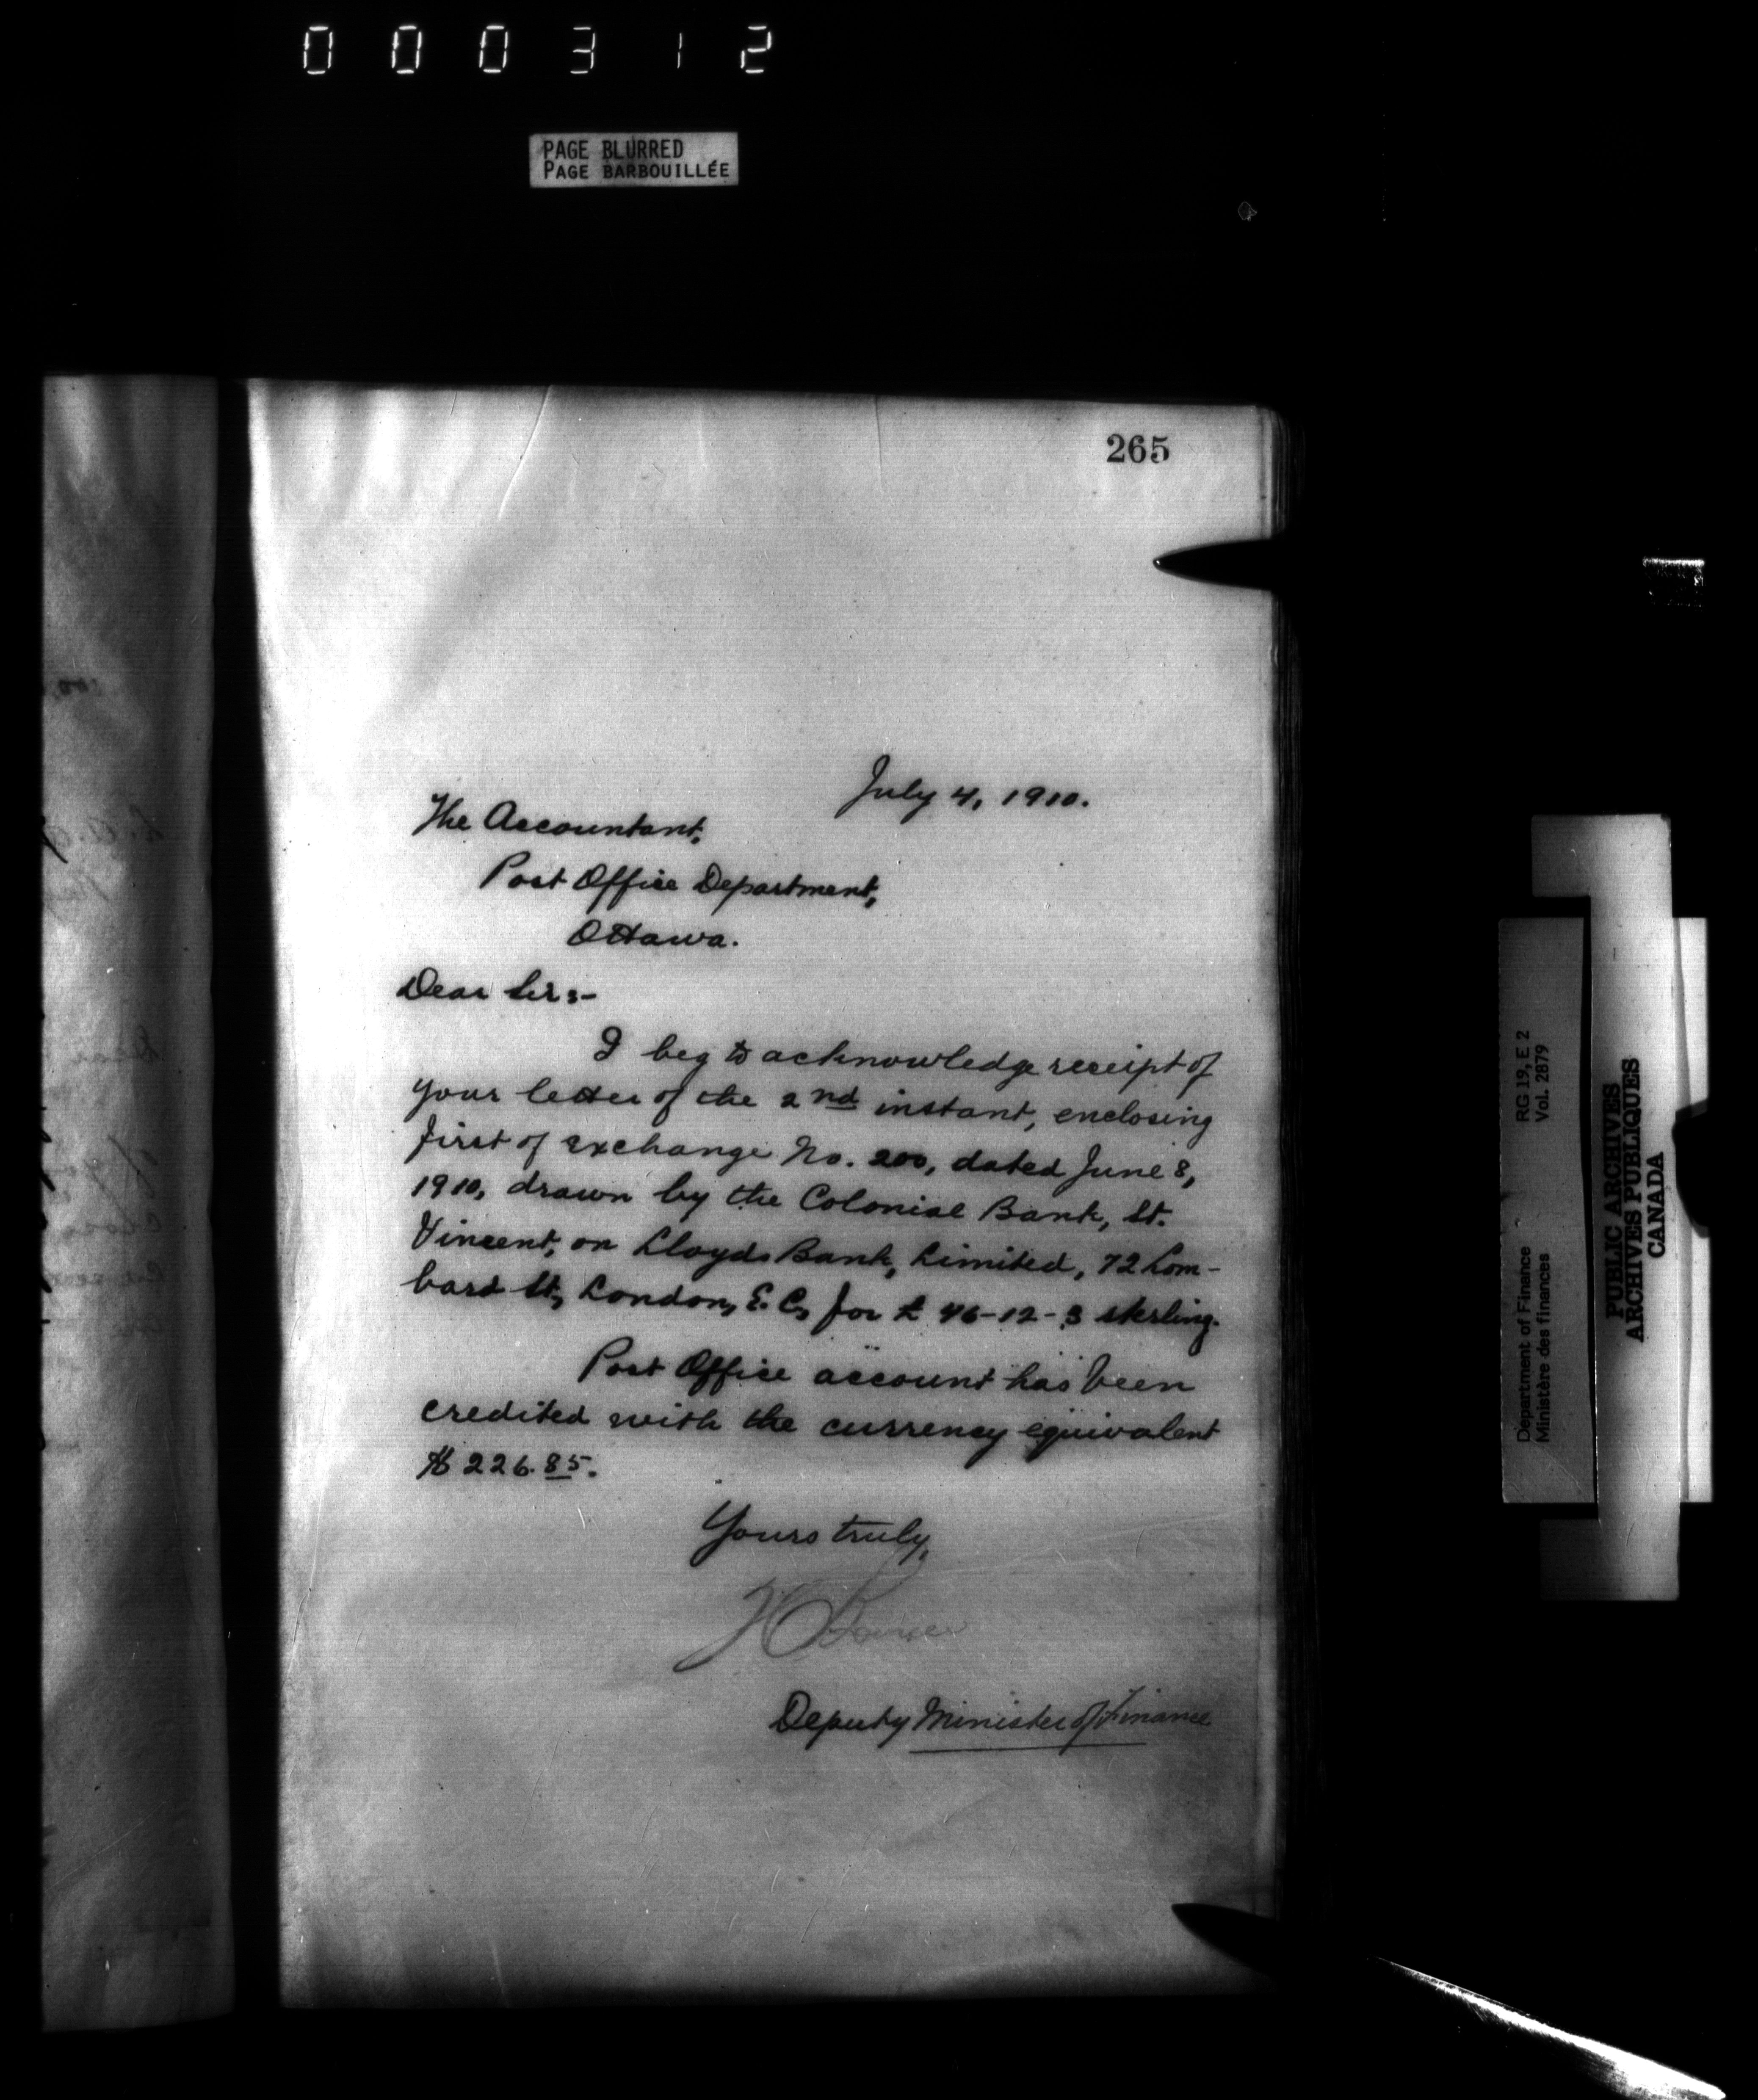 000312
PAGE BLURRED
PAGE BARBOUILLÉE
265
July 4, 1910.
The Accountant,
Post Office Department,
Ottawa.
Dear Sir:-
I beg to acknowledge receipt of
your letter of the 2nd instant, enclosing
first of exchange No. 200, dated June 8,
1910, drawn by the Colonial Bank, St.
Vincent, on Lloyds Bank, Limited, 72 Lom-
bard St., London, E. C., for £ 46-12-3 sterling.
Post Office account has been
credited with the currency equivalent
$ 226.85.
Yours truly,
Deputy Minister of Finance
RG 19, E 2
Vol. 2879
Department of Finance
Ministère des finances
PUBLIC ARCHIVES
ARCHIVES PUBLIQUES
CANADA